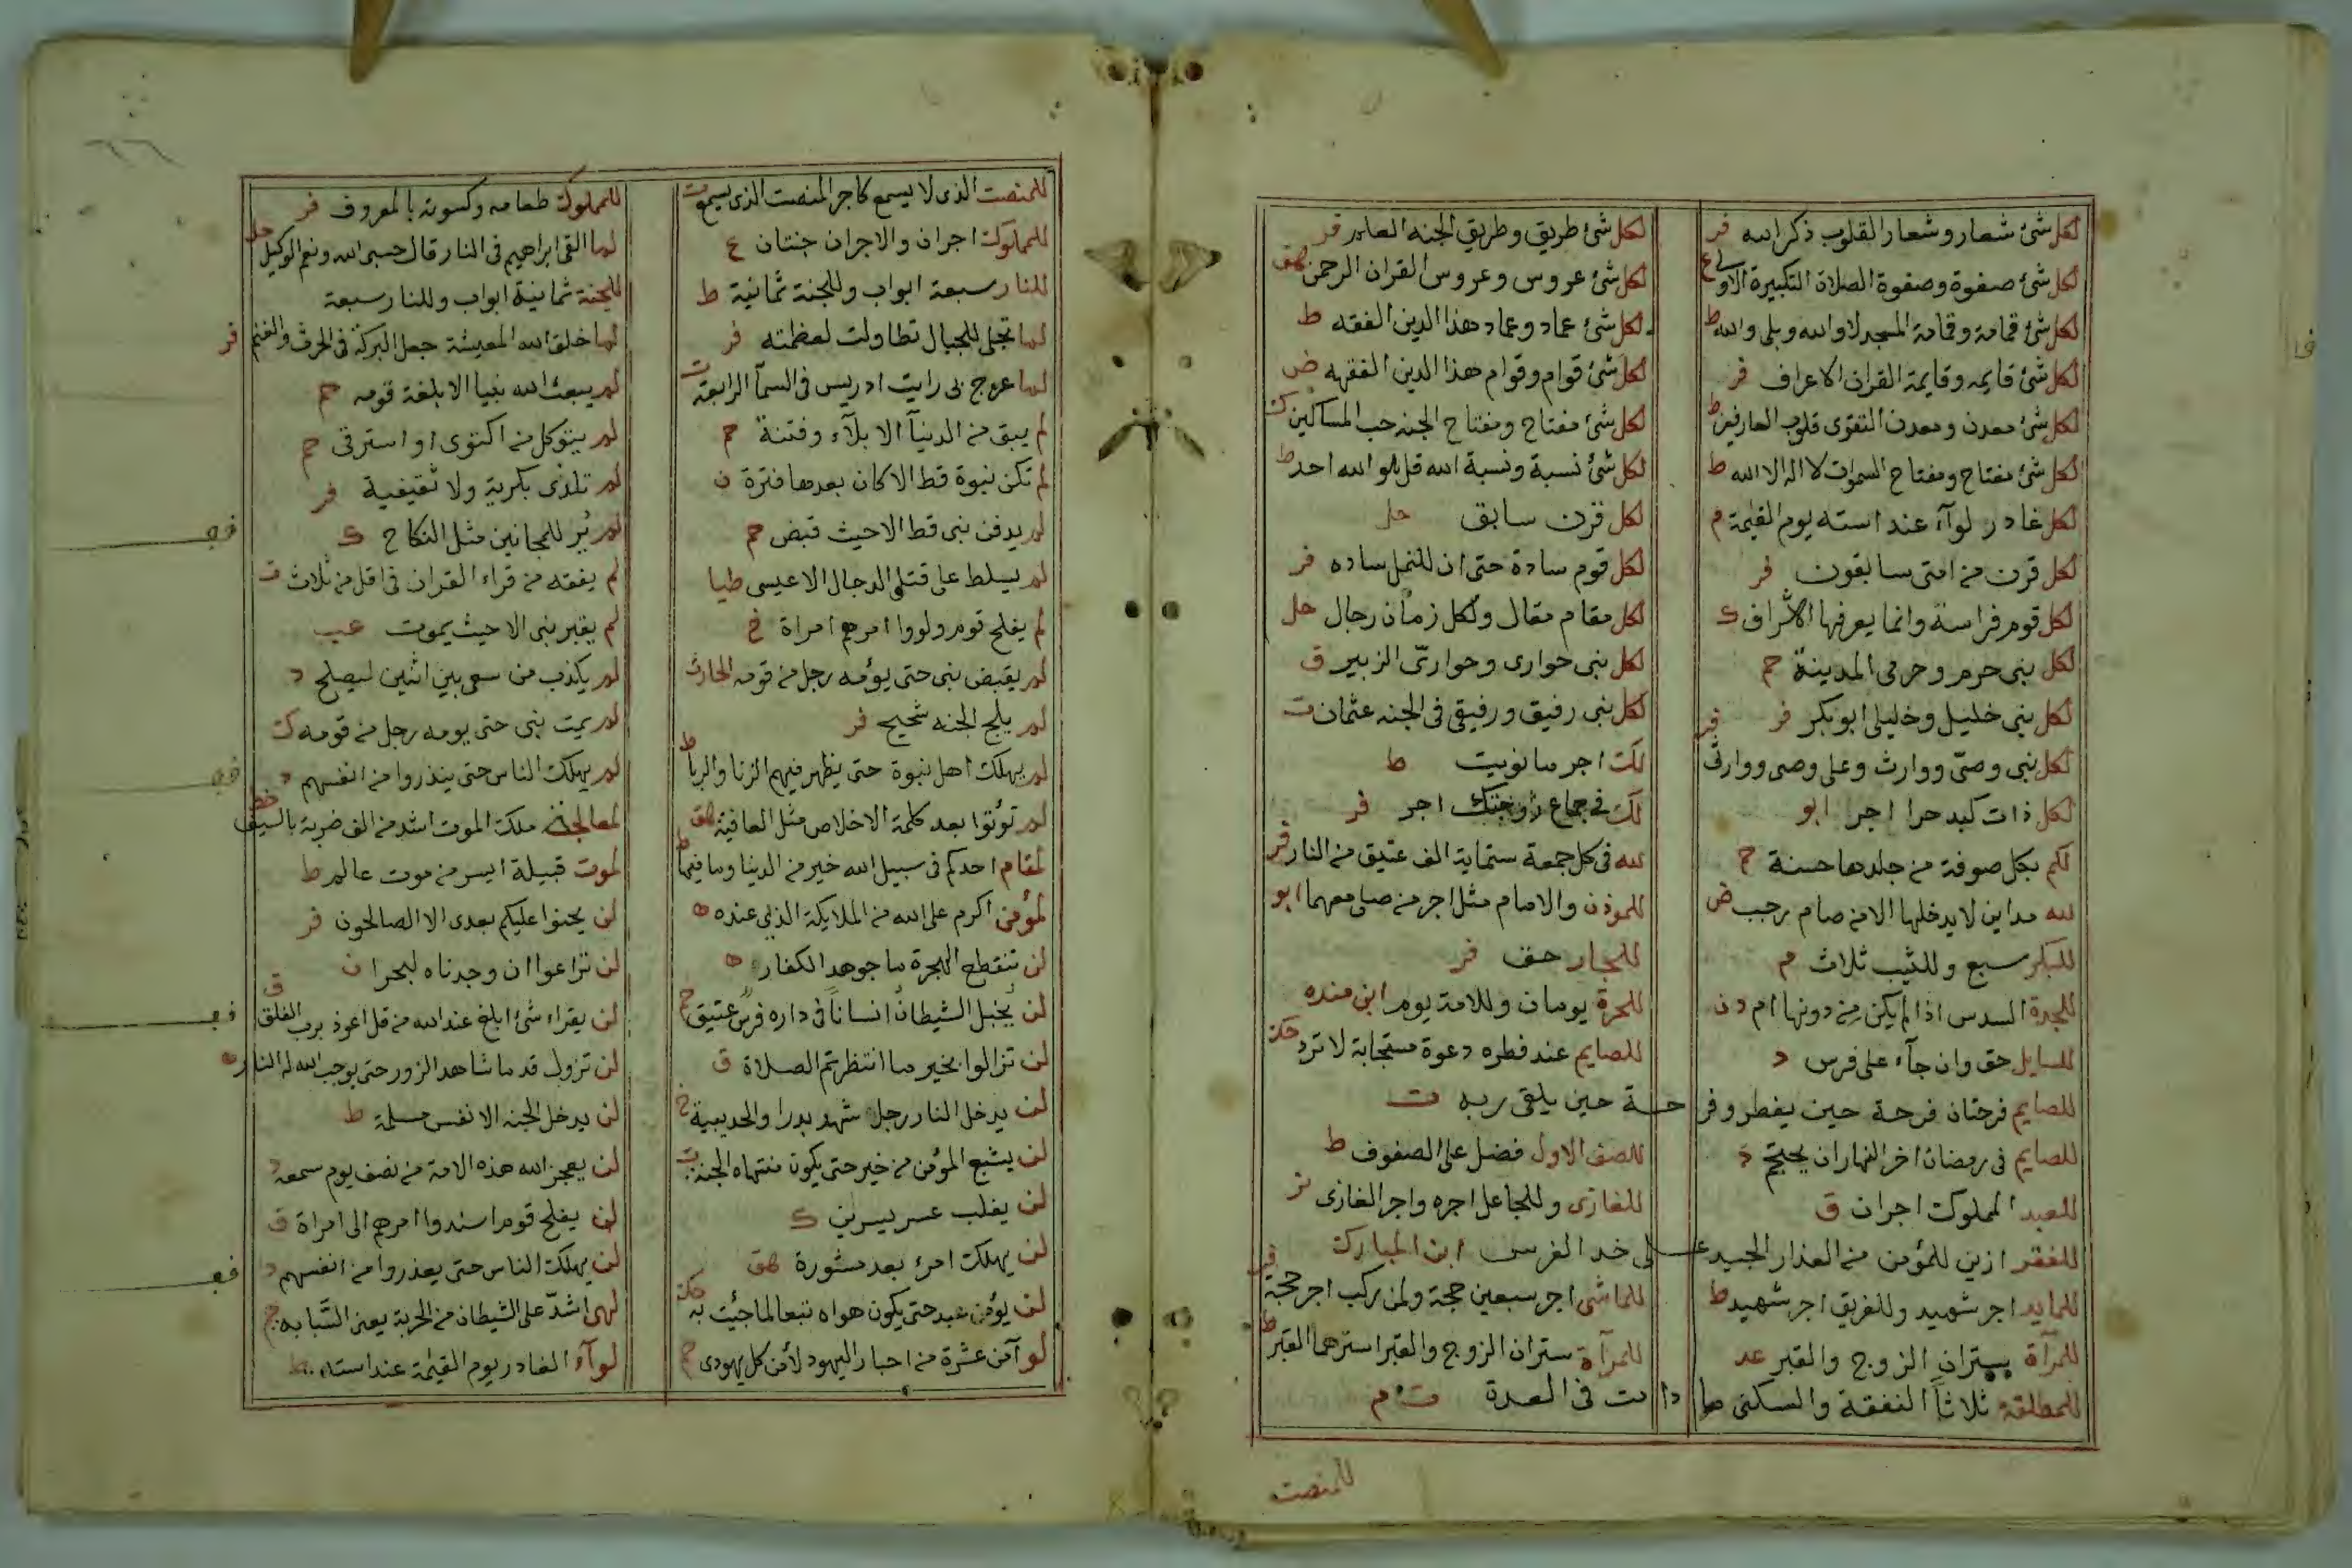 لكل شئ شعار وشعار القلوب ذكر الله فر
لكل شئ صفوة وصفوة الصلاة التكبيرة الاولى ع
لكل شئ قمامة وقمامة المسجد لا والله وبلى والله ط
لكل شئ قايمه وقايمة القران الاعراف فر
لكل شئ معدن ومعدن التقوى قلوب العارفين ط
لكل شئ مفتاح ومفتاح السموات لا اله الا الله ط
لكل غادر لوآء عند استه يوم القيمة م
لكل قرن من امتى سابقون فر
لكل قوم فراسة وانما يعرفها الاشراف ك
لكل بنى حرم وحرمى المدينة حم
لكل بنى خليل وخليلى ابو بكر فر
لكل نبى وصىّ ووارث وعلى وصى ووارثى فر
لكل ذات كبد حرا اجر ابو
لكم بكل صوفة من جلدها حسنة ح
لله مداين لا يدخلها الا من صام رجب ض
للبكر سبع وللثيب ثلاث م
للجدة السدس اذا لم يكن من دونها ام د ن
للسايل حق وان جآء على فرس د
للصايم فرحتان فرحة حين يفطر وفرحة حين يلقى ربه ت
للصايم فى رمضان اخر النهار ان يحتجم
للعبد المملوك اجران ق
للفقر ازين للمؤمن من العذار الجيد على خد الفرس ابن المبارك
للمايد اجر شهيد وللغريق اجر شهيد ط
للمرآة ستران الزوج والقبر عد
للمطلقة ثلاثاً النفقة والسكنى ما دامت فى العدة
لكل شئ طريق وطريق الجنه العلم فر
لكل شئ عروس وعروس القران الرحمن هق
لكل شئ عماد وعماد هذا الدين الفقه ط
لكل شئ قوام وقوام هذا الدين الفقه ض
لكل شئ مفتاح ومفتاح الجنه حب المساكين
لكل شئ نسبة ونسبة الله قل هو الله احد ط
لكل قرن سابق حل
لكل قوم سادة حتى ان للنحل ساده فر
لكل مقام مقال ولكل زمان رجال حل
لكل بنى حوارى وحوارىّ الزبير ق
لكل بنى رفيق ورفيقى فى الجنه عثمان ت
لك اجر ما نويت ط
لك فى جماع زوجتك اجر فر
لله فى كل جمعة ستماية الف عتيق من النار فر
للموذن والامام مثل اجر من صلى معهما ابو
للجار حق فر
للحرة يومان وللامة يوم ابن منده
للصايم عند فطره دعوة مستجابة لا ترد
للصف الاول فضل على الصفوف ط
للغازى وللجاعل اجره واجر الغازى
للماشى اجر سبعين حجة ولمن ركب اجر حجة فر
للمرآة ستران الزوج والقبر استرهما القبر ط
للمنصت
للمنصت الذى لا يسمع كاجر المنصت الذى يسمع
للمملوك اجران والاجران جنتان ع
للنار سبعة ابواب وللجنة ثمانية ط
لما تجلى للجبال تطاولت لعظمته فر
لما عرج بى رايت ادريس فى السمآ الرابعة ت
لم يبق من الدنيآ الا بلآء وفتنة حم
لم تكن نبوة قط الا كان بعدها فترة ن
لم يدفن نبى قط الا حيث قبض حم
لم يسلط على قتل الدجال الا عيسى طيا
لم يفلح قوم ولووا امرهم امراة خ
لم يقبض نبى حتى يؤمه رجل من قومه الحارث
لم يلج الجنه شحيح فر
لم يهلك اهل نبوة حتى يظهر فيهم الزنا والربا ط
لم تؤتوا بعد كلمة الاخلاص مثل العافية هق
لمقام احدكم فى سبيل الله خير من الدنيا وما فيها ط
لمؤمن اكرم على الله من الملايكة الذين عنده ه
لن تنقطع الهجرة ما جوهد الكفار ه
لن يخبل الشيطان انساناً فى داره فرس عتيق
لن تزالوا بخير ما انتظرتم الصلاة ق
لن يدخل النار رجل شهد بدرا والحديبية
لن يشبع المؤمن من خير حتى يكون منتهاه الجنة ت
لن يغلب عسر يسرين ك
لن يهلك امرئ بعد مشورة هق
لن يؤمن عبد حتى يكون هواه تبعا لما جئت به
لو آمن عشرة من احبار اليهود لآمن كل يهودى
للمملوك طعامه وكسوته بالمعروف فر
لما القى ابراهيم فى النار قال حسبى الله ونعم الوكيل
للجنة ثمانية ابواب وللنار سبعة
لما خلق الله المعيشة جعل البركة فى الحرث والغنم فر
لم يبعث الله نبيا الا بلغة قومه حم
لم يتوكل من اكتوى او استرقى حم
لم تلدنى بكرية ولا ثقيفية فر
لم ير للمجانين مثل النكاح ك
لم يفقه من قراء القران فى اقل من ثلاث ت
لم يقبر نبى الا حيث يموت عب
لم يكذب من سعى بين اثنين ليصلح د
لم يمت نبى حتى يومه رجل من قومه ك
لم يهلك الناس حتى ينذروا من انفسهم د
لمعالجة ملك الموت اشد من الف ضربة بالسيف خط
لموت قبيلة ايسر من موت عالم ط
لن يحنوا عليكم بعدى الا الصالحون فر
لن تراعوا ان وجدناه لبحرا ن
لن يقراء شئ ابلغ عند الله من قل اعوذ برب الفلق ق
لن تزول قدما شاهد الزور حتى يوجب الله له النار ه
لن يدخل الجنه الا نفس مسلمة ط
لن يعجز الله هذه الامة من نصف يوم
لن يفلح قوم اسندوا امرهم الى امراة ق
لن يهلك الناس حتى يعذروا من انفسهم د
لهى اشدّ على الشيطان من الحربة يعنى السّبابه
لوآء الغادر يوم القيمة عند استه ط